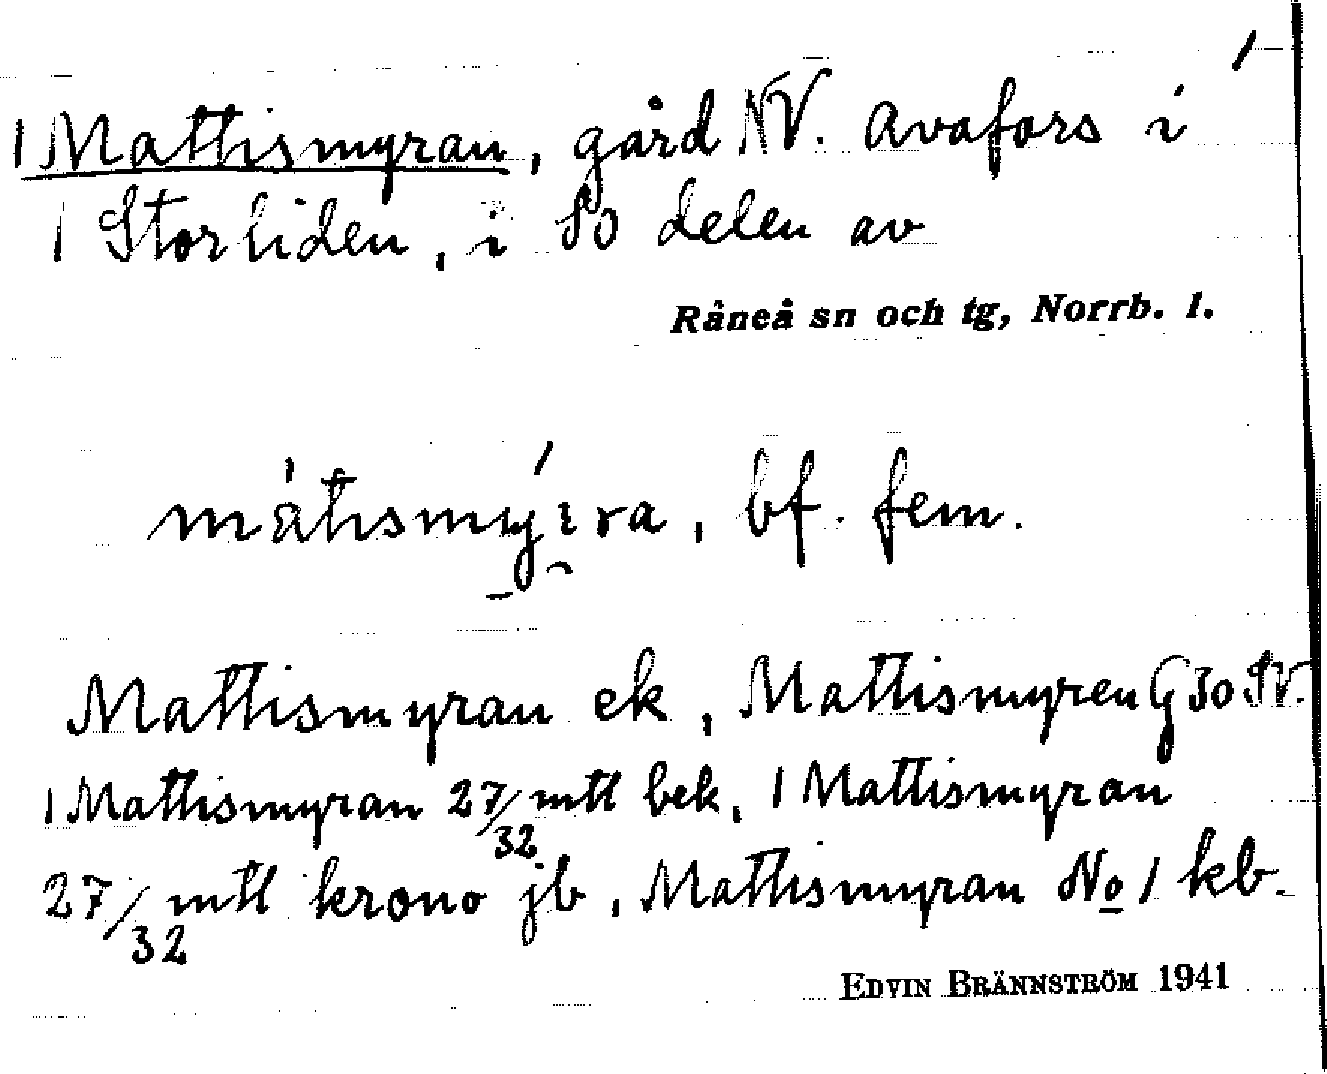 1 Mattismyran, gård NV. Avafors i
1 Storliden, i SO delen av
Råneå sn och tg, Norrb. l.
bf. fem.
Mattismyran ek, Mattismyren G 30 SV.
1 Mattismyran 27/32 mtl bek, 1 Mattismyran
27/32 mtl krono jb, Mattismyran No 1 kb.
EDVIN BRÄNNSTRÖM 1941